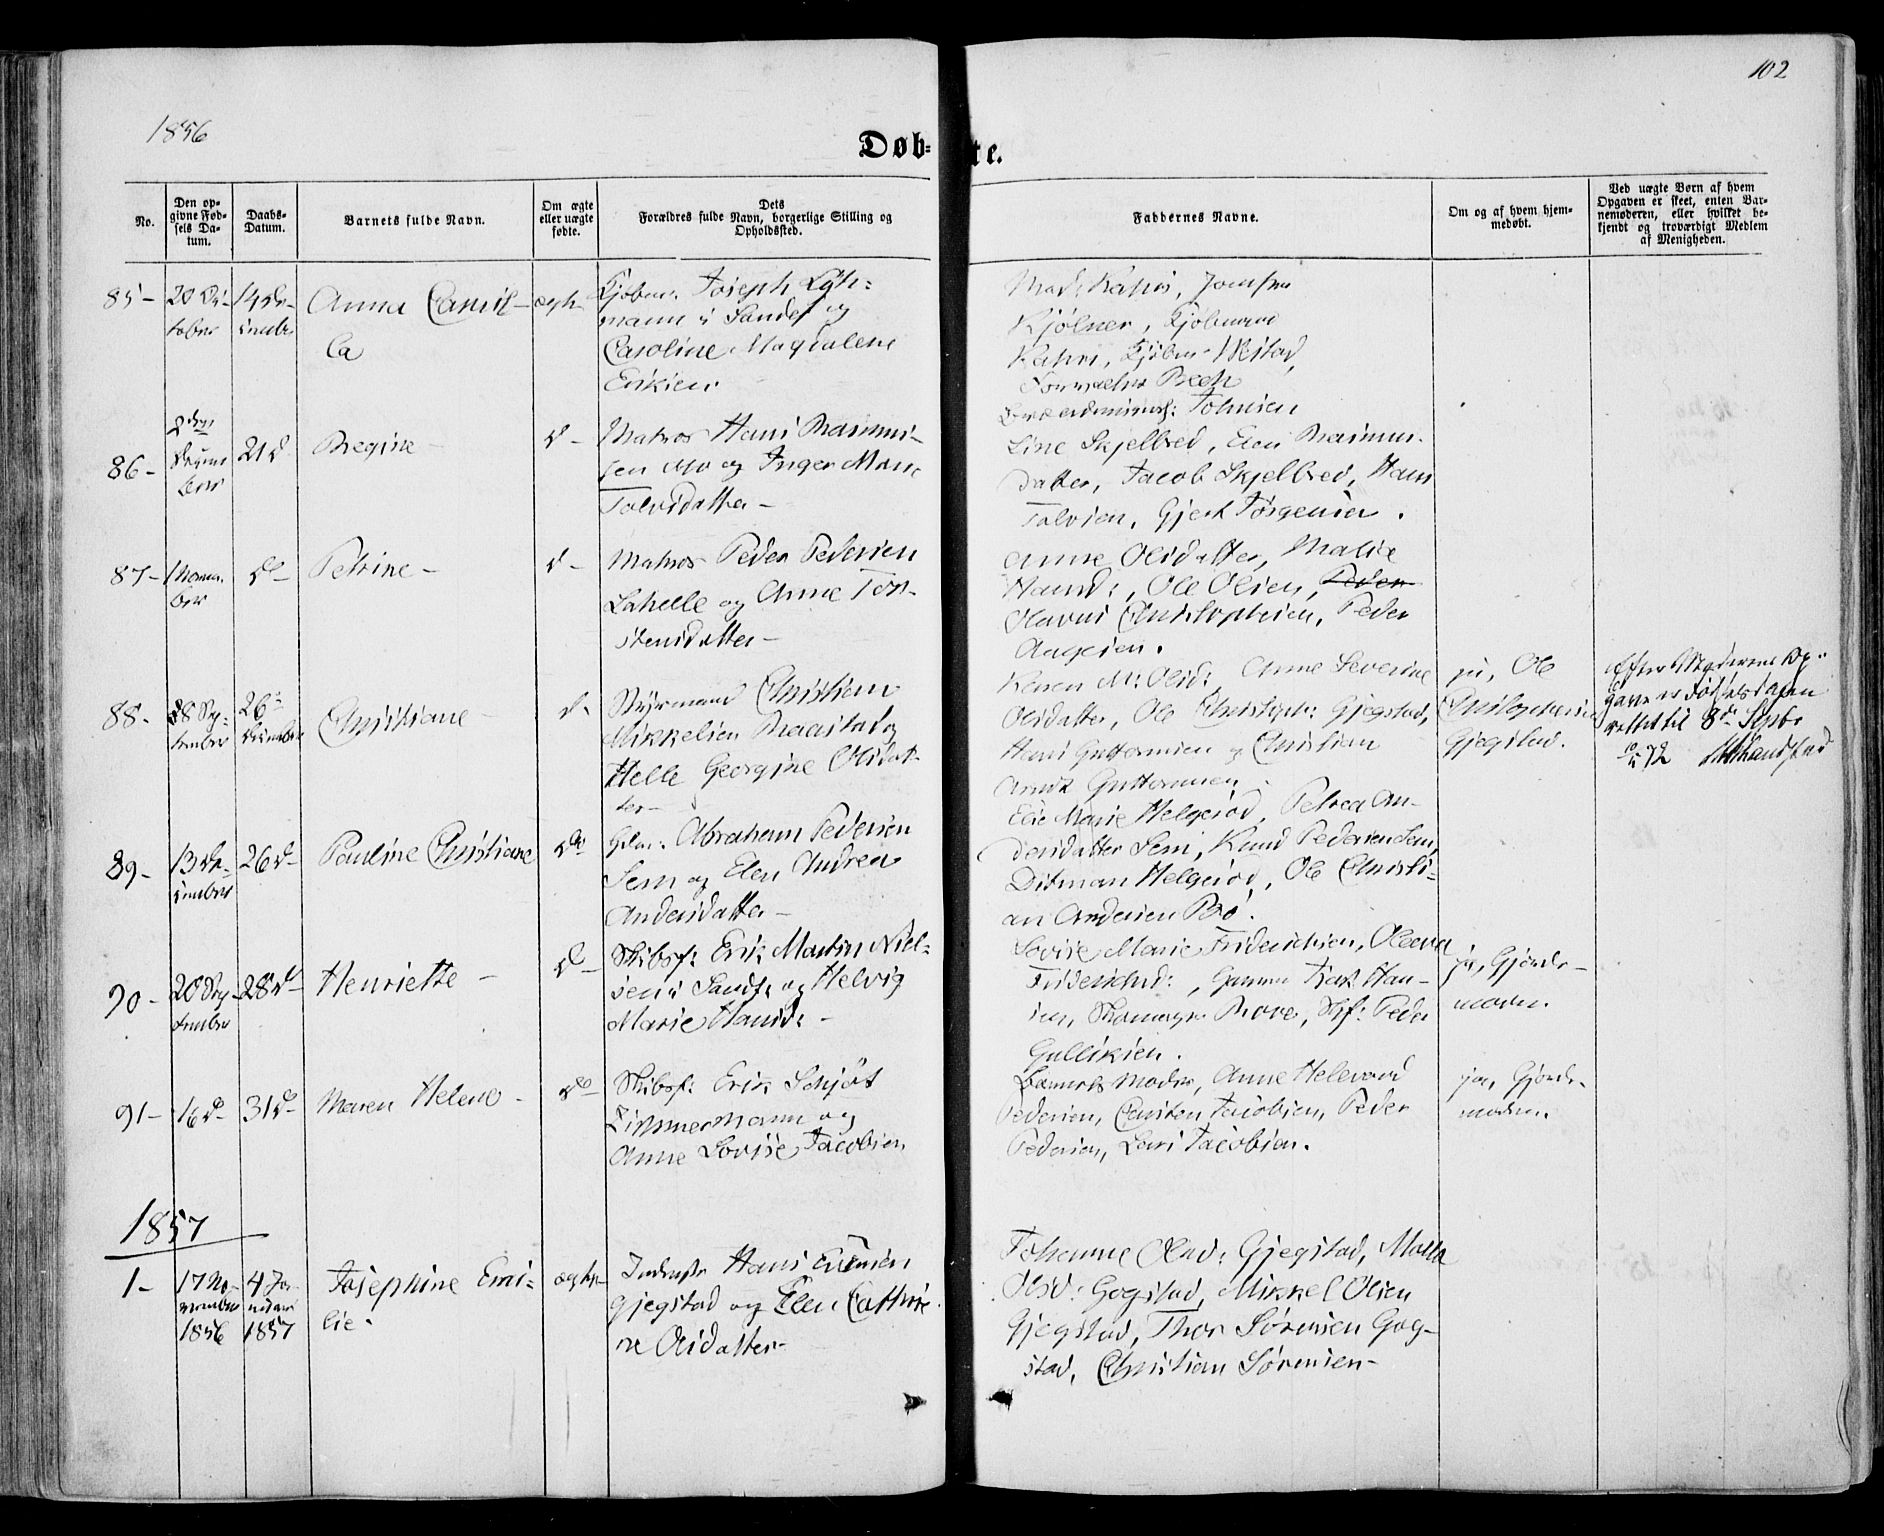 102
1856
Døb=te.
No.
Den op-
givne Fød-
sels Da-
tum.
Daabs-
Datum.
Barnets fulde Navn.
Om ægte
eller uægte
fødte.
Dets
Forældres fulde Navn, borgerlige Stilling og
Opholdssted.
Faddernes Navne.
Om og af hvem hjem-
medøbt.
Ved uægte Børn af hvem
Opgaven er skeet, enten Bar-
nemoderen, eller hvilket be-
kjendt og troværdigt Medlem
af Menigheden.
85-
20 Oc-
tober
14 De-
cember
Anna Camil-
la
ægte
Kjøbm: Joseph
mann i Sandef og
Caroline Magdalene
Eriksen.
Mad: Jomfru
Kjølner, Kjøbmand
Kjøbm
Bech
86-
2den
Decem
ber
21 d
Regine -
d -
Matros Hans Rasmus-
sen Mo og Inger Marie
Talvsdatter -
Johnsen
Line Skjelbred, Elen Rasmus-
datter, Jacob Skjelbred, Hans
Talvsen, Gjert Jørgensen.
87-
1 Novem-
ber
do -
Petrine -
d -
Matros Peder Pedersen
Lahelle og Anne Tor-
stensdatter -
Anne Olsdatter, Malie
Hansd:, Ole Olsen, Peder
Olavus Christophersen, Peder
Aagesen.
88-
28 Sep-
tember
26
December
Christiane -
d.
Styrmand Christian
Mikkelsen Raastad og
Helle Georgine Olsdat-
ter -
Karen M: Olsd:, Anne Severine
Olsdatter, Ole Christoph: Gjegstad,
Hans Guttormsen og Christian
Arndt Guttormsen.
ja, Ole
Christophersen
Gjegstad.
Efter Moderens Op-
gave er Fødselsdagen
rettet til 8de Septbr
72
89-
13 De-
cember
26 d-
Pauline Christiane
do
Gdm: Abraham Pedersen
Sem og Elen Andrea
Andersdatter -
Elie Marie Helgerød, Petrea An-
dersdatter Sem, Knud Pedersen Sem,
Ditman Helgerød, Ole Christi-
an Andersen Bø.
90-
20 Sep-
tember
28 d-
Henriette -
do -
Skibsf: Erik Martin Niel-
sen i Sandef og Helvig
Marie Hansd: -
Lovise Marie Friderichsen, Oleana
Friderichsd:, Gunner Isak Han-
sen, Skomager Rove, Skf: Peder
Gulliksen.
ja, Gjorde-
moder.
91-
16 d-
31 d-
Maren Helene -
do -
Skibsf: Erik Schjøt
Zimmermann og
Anne Lovise Jacobsen
Barnets Moder, Anne Helevard
Pedersen, Carsten Jacobsen, Peder
Pedersen, Lars Jacobsen.
ja, Gjorde-
moder.
1857
1-
17 No-
vember
1856
4 Ja-
nuar
1857
Josephine Emi-
lie.
ægte
Inderst Hans Evensen
Gjegstad og Elen Cathri-
ne Olsdatter -
Johanne Olsd: Gjegstad, Malla
Olsd: Gogstad, Mikkel Olsen
Gjegstad, Thor Sørensen Gog-
stad, Christian Sørensen -